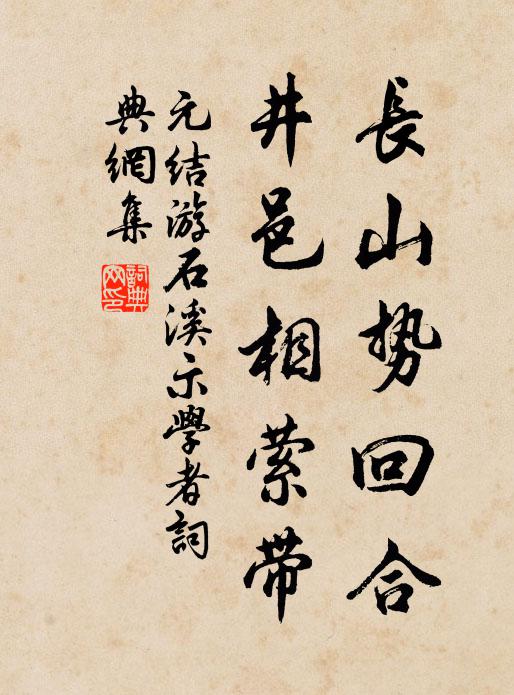 長山势回合
井邑相萦带
元结游石溪示學者詞
典網集
詞典网印